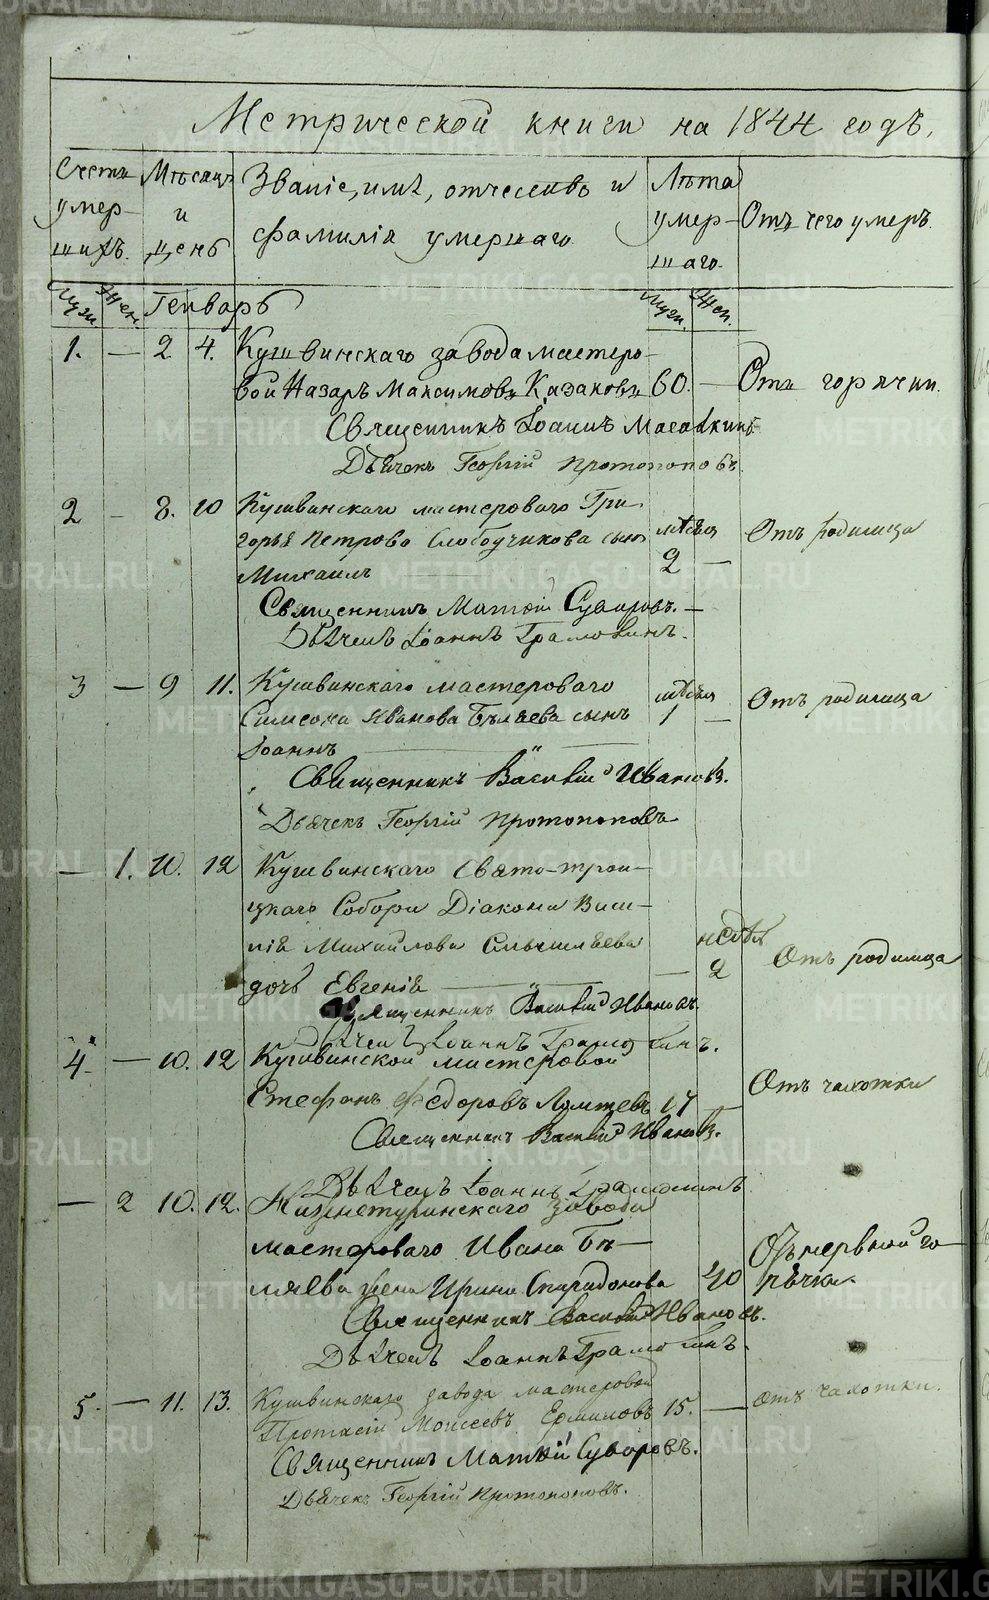 Метрической книги на 1844 годъ,
Счетъ умер-шихъ.
Мѣсяцъ и день
Званіе, имя, отчество и фамилія умершаго.
Лѣта умер-шаго.
Отъ чего умеръ.
Муж. Жен. Генварь Муж. Жен.
1. — 2 4. Кушвинскаго завода мастеро-
вой Назаръ Максимовъ Казаковъ 60. — Отъ горячки.
Священникъ Іоаннъ
Дьячекъ Георгій Протопоповъ
2 — 8. 10 Кушвинскаго мастероваго Гри-
горья Петрова Слободчикова сынъ мѣсяц Отъ родимца
Михаилъ 2 —
Священникъ Матѳій Суворовъ. —
Дьячекъ Іоаннъ Грамотинъ.
3 — 9 11. Кушвинскаго мастероваго мѣсяц Отъ родимца
Симеона Иванова Бѣляева сынъ 1 —
Іоаннъ
Священникъ Василій Ивановъ.
Дьячекъ Георгій Протопоповъ
— 1. 10. 12 Кушвинскаго Свято-трои-
цкаго Собора Діакона Васи-
лія Михайлова недѣл
дочь Евгенія — 2 Отъ родимца
Священникъ Василій Ивановъ.
Дьячекъ Іоаннъ Грамотинъ.
4 — 10. 12 Кушвинской мастеровой
Стефанъ Федоровъ 17 — Отъ чахотки
Священникъ Василій Ивановъ.
Дьячекъ Іоаннъ Грамотинъ
— 2 10. 12. Нижнетуринскаго завода
мастероваго Ивана Бѣ- Отъ нервной го-
ляева жена Ирина Спиридонова 40 рячки.
Священникъ Василій Ивановъ.
Дьячекъ Іоаннъ Грамотинъ.
5. — 11. 13. Кушвинскаго завода мастеровой отъ чахотки.
Протасій Моисеевъ Ермиловъ 15. —
Священникъ Матѳій Суворовъ.
Дьячекъ Георгій Протопоповъ.
METRIKI.GASO-URAL.RU